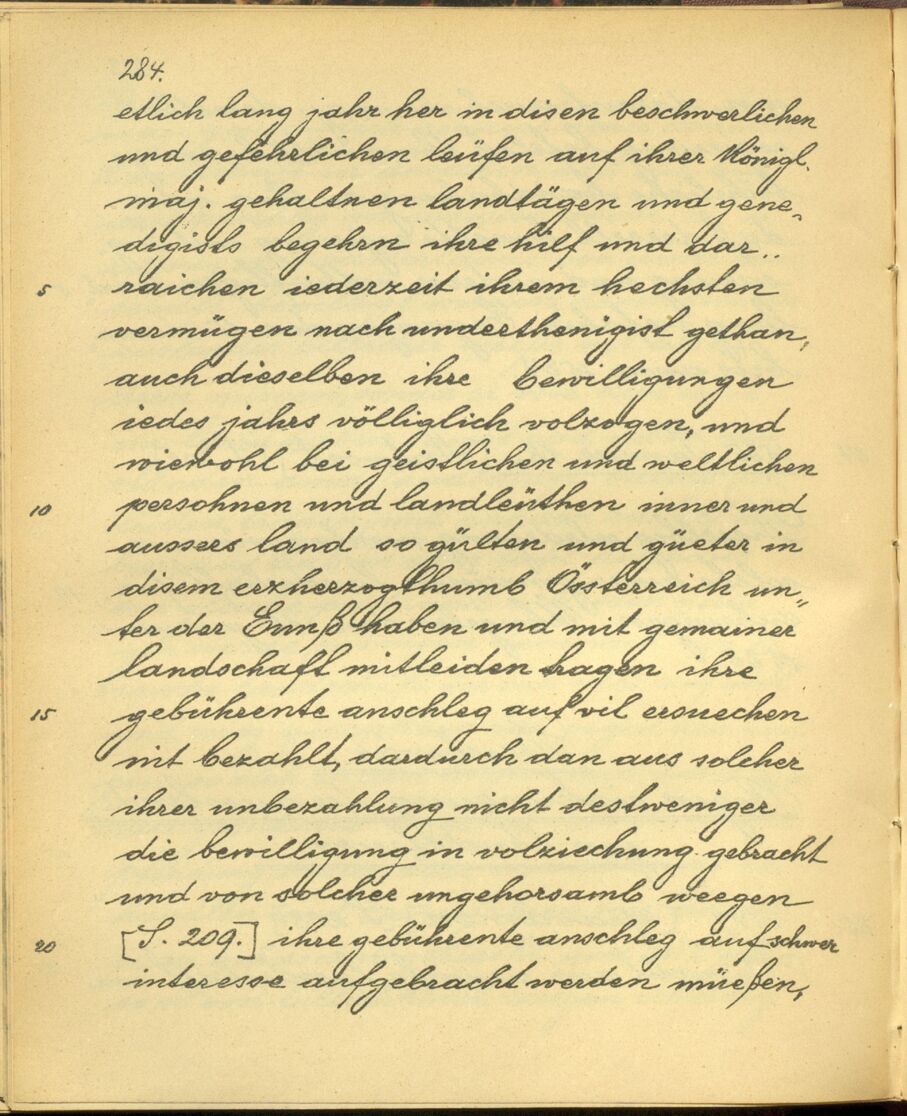 284.
etlich lang jahr her in disen beschwerlichen
und gefehrlichen leüfen auf ihrer Königl.
maj. gehaltnen landtägen und gene„
digists begehrn ihre hilf und dar„
5 raichen iederzeit ihrem hechsten
vermügen nach underthenigist gethan,
auch dieselben ihre bewilligungen
iedes jahrs völliglich volzogen, und
wiewohl bei geistlichen und weltlichen
10 persohnen und landleüthen inner und
aussers land so gülten und güeter in
disem erzherzogthumb Össterreich un„
ter der Ennß haben und mit gemainer
landschaft mitleiden tragen ihre
15 gebührente anschleg auf vil ersuechen
nit bezahlt, dardurch dan aus solcher
ihrer unbezahlung nicht destweniger
die bewilligung in volziechung gebracht
und von solcher ungehorsamb weegen
20 [S. 209.] ihre gebührente anschleg auf schwer
interesse aufgebracht werden müeßen,